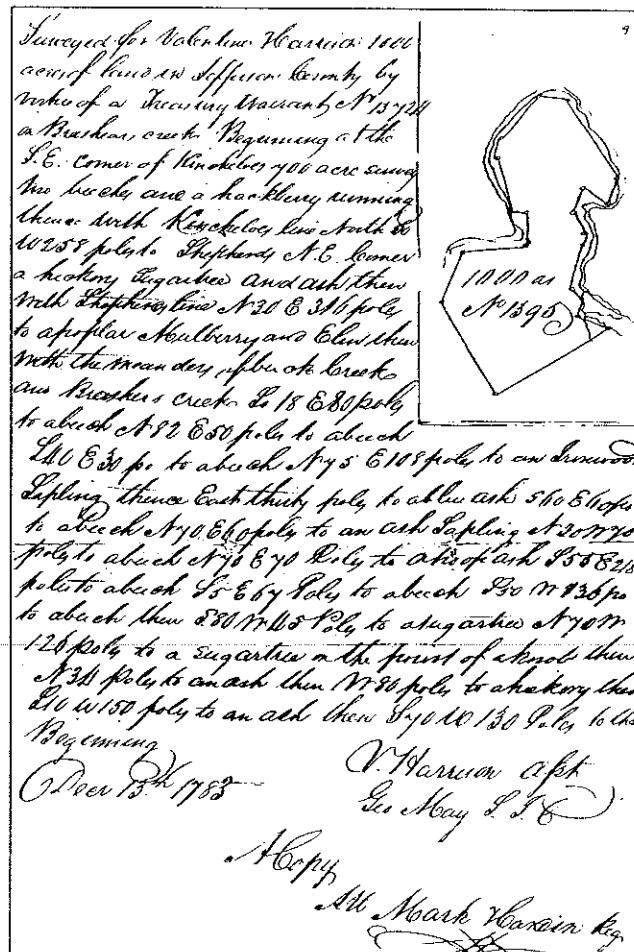 Surveyed for Valentine Harrison 1000
acres of land in Jefferson County by
virtue of a Treasury Warrant No 13724
on Brashears creek Beginning at the
S.E. corner of Kincheloes 700 acre survey
two beeches and a hackberry running
thence with Kincheloes line North
W 258 poles to Shepherds N.E. Corner
a hickory Sugartree and ash then
with Shepherds line N30 E 316 poles
to a poplar Mulberry and Elm then
with the meanders of Creek
and Brashers creek So 18 E 80 poles
to a beech N82 E50 poles to a beech
S40 E 30 po to a beech N75 E108 poles to an Ironwood
Sapling thence East thirty poles to a blue ash S60 E60 po
to a beech N70 E60 poles to an ash Sapling N20 W70
poles to a beech N70 E70 Poles to a ash S55 E
poles to abeech S5 E67 Poles to abeech S30 W136 po
to a beech then S80 W Poles to a sugartree N70 W
126 poles to a sugartree on the point of a knob then
N34 poles to an ash then W80 poles to a hickory then
S10 W150 poles to an ash then S70 W130 Poles to the
Beginning
Decr 13th 1783
V. Harrison Asst
Geo May S. J. C
A Copy
Att Mark Hardin Reg
9
1000 as
No 1395